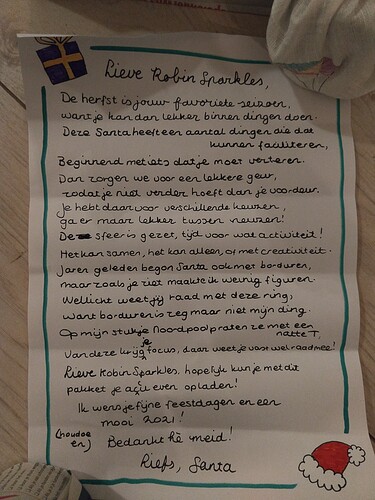 Lieve Robin Sparkles,
De herfst is jouw favoriete seizoen,
want je kan dan lekker binnen dingen doen.
Deze Santa heeft een aantal dingen die dat
kunnen faciliteren,
Beginnend met iets dat je moet verteren.
Dan zorgen we voor een lekkere geur,
zodat je niet verder hoeft dan je voordeur.
Je hebt daar voor verschillende keuzen,
ga er maar lekker tussen neuzen!
De sfeer is gezet, tijd voor wat activiteit!
Het kan samen, het kan alleen, of met creativiteit.
Jaren geleden begon Santa ook met borduren,
maar zoals je ziet maakte ik weinig figuren.
Wellicht weet jij raad met deze ring,
want borduren is zeg maar niet mijn ding.
Op mijn stukje Noordpool praten ze met een
natte T,
Van deze krijg je focus, daar weet je vast wel raad mee!
Lieve Robin Sparkles, hopelijk kun je met dit
pakket je accu even opladen!
Ik wens je fijne feestdagen en een
mooi 2021!
(houdoe en) Bedankt hè meid!
Liefs, Santa